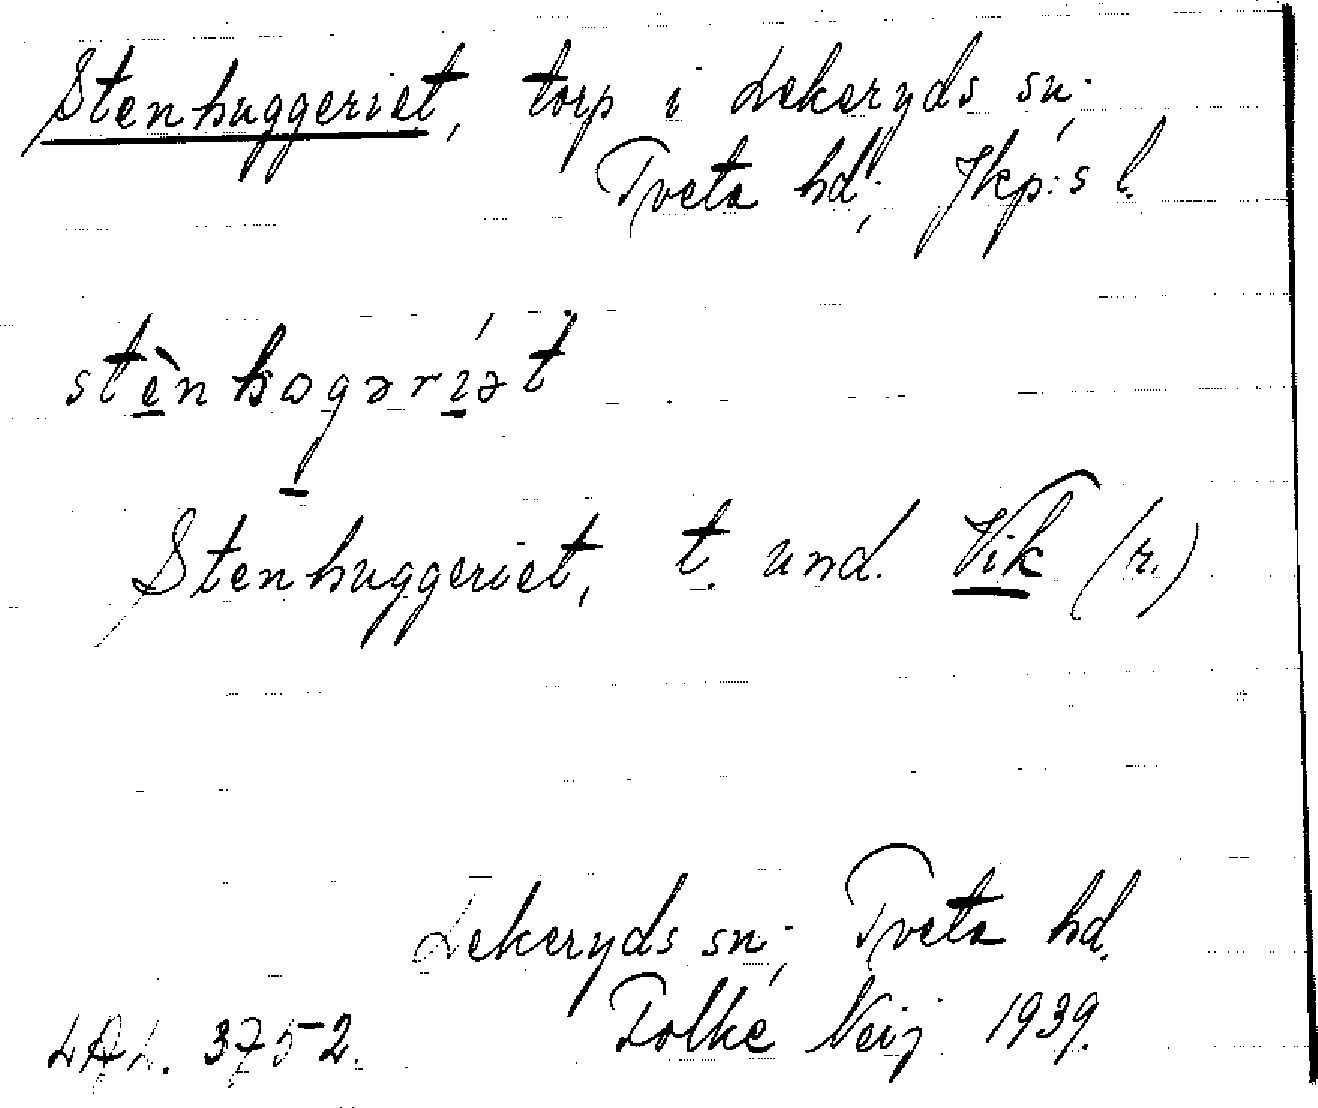 Stenhuggeriet, torp i Lekeryds sn;
Tveta hd; Jkp:s l.
stènhogəríət
Stenhuggeriet, t. und. Vik (r.)
Lekeryds sn; Tveta hd.
L.A.L. 3752. Folke Neij 1939.